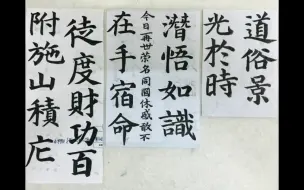 道俗景
光於時
潛悟如識
今日再世荣名同國休戚敢不
在手宿命
徒度財功百
附施山積庀